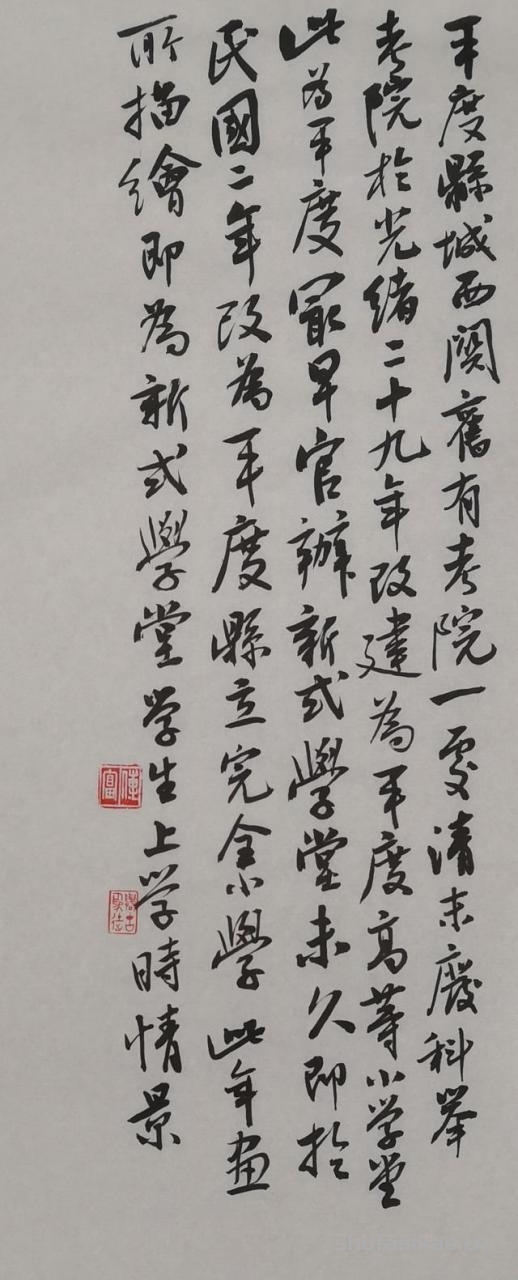 平度縣城西関舊有考院一處清末廢科举
考院於光緒二十九年改建為平度高等小学堂
此为平度最早官辦新式學堂未久即於
民國二年改為平度縣立完全小學此年画
所描繪即為新式學堂学生上学時情景